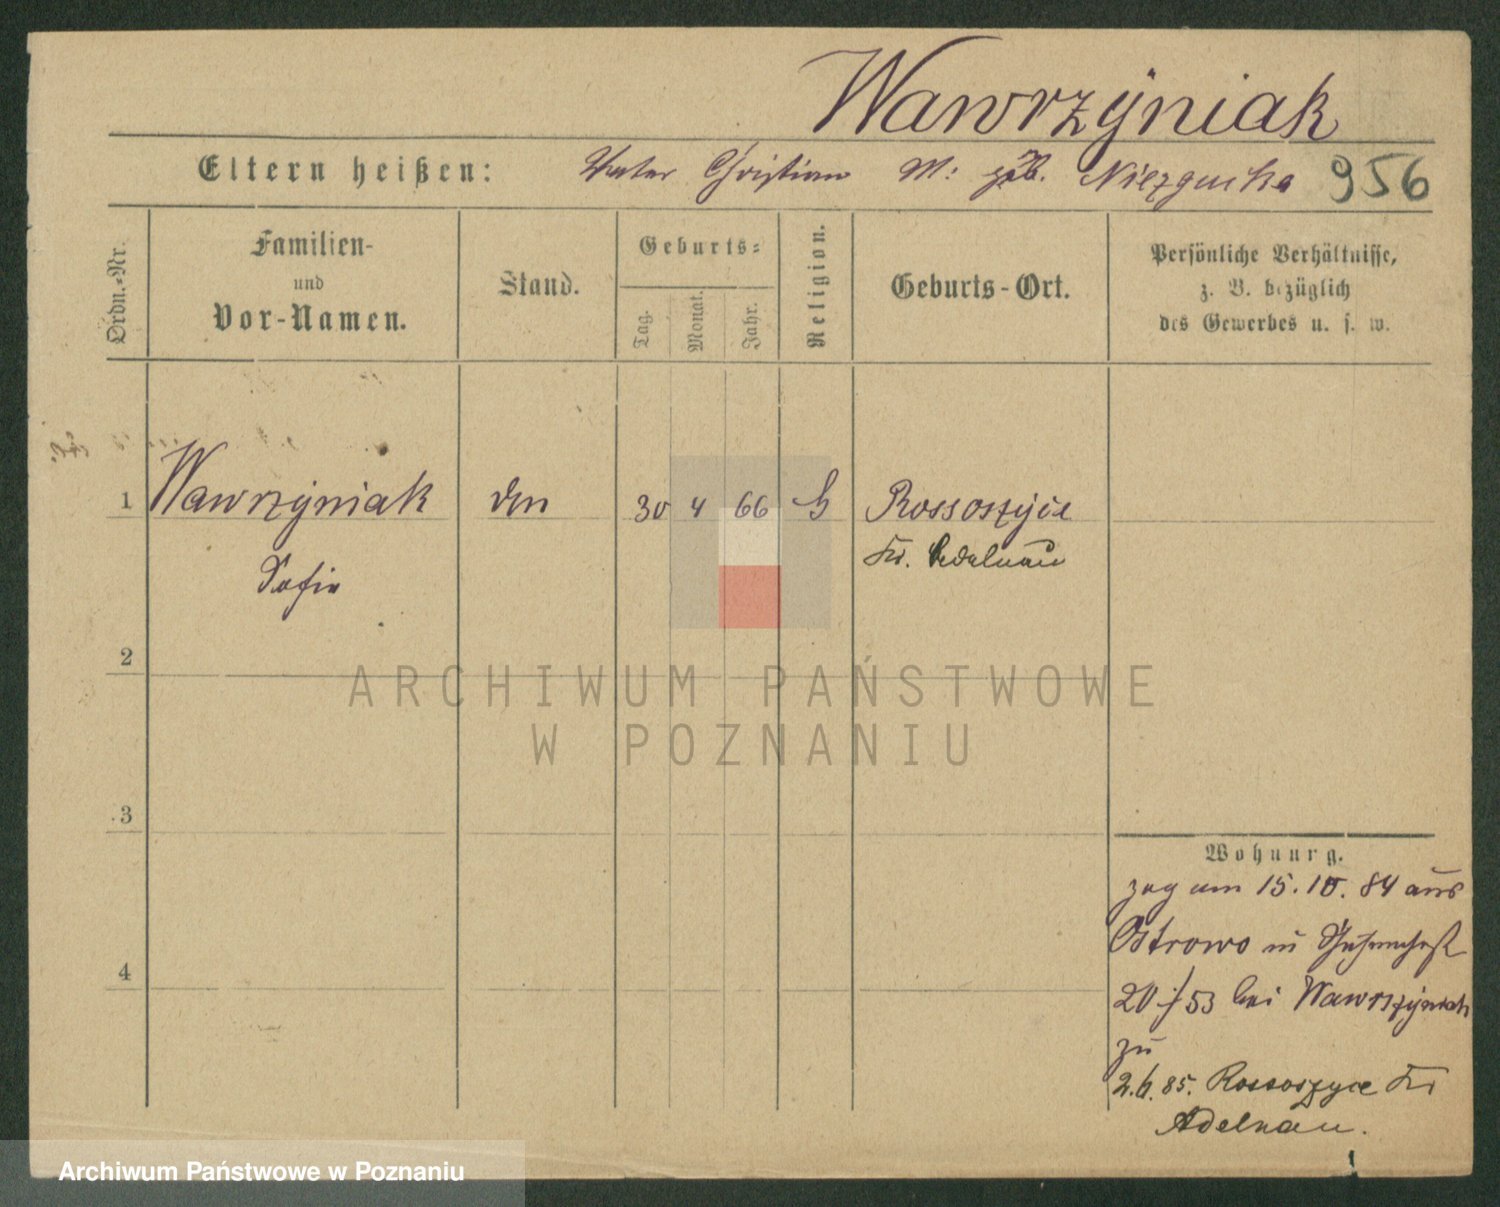 Wawrzyniak
Eltern heißen: Vater Christian M: geb. Niezgucka 956
Ordn.-Nr.
Familien-
und
Vor-Namen.
Stand.
Geburts-
Tag. Monat. Jahr.
Religion.
Geburts-Ort.
Persönliche Verhältnisse,
z. B. bezüglich
des Gewerbes u. s. w.
1 Wawrzyniak 30 4 66 Rossoszyce
Kr. Adelnau
Sofie
2
3
4
Wohnung.
zog am 15.10.84 aus
Ostrowo in
20/53 bei Wawrszyniak
zu
2.6.85. Rossoszyce Kr
Adelnau.
ARCHIWUM PAŃSTWOWE
W POZNANIU
Archiwum Państwowe w Poznaniu